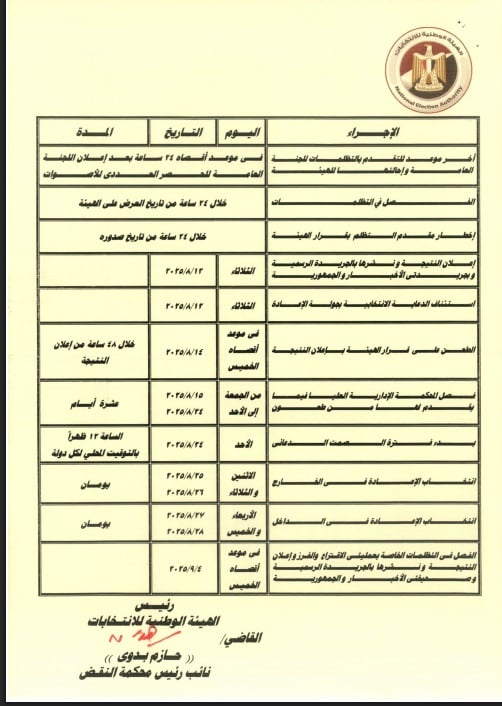 الهيئة الوطنية للانتخابات
National Election Authority
الإجراء اليوم التاريخ المدة
آخر موعد للتقدم بالتظلمات للجنة العامة وإحالتها للهيئة
فى موعد أقصاه ٢٤ ساعة بعد إعلان اللجنة العامة للحصر العددى للأصوات
الفصل في التظلمات
خلال ٢٤ ساعة من تاريخ العرض على الهيئة
إخطار مقدم التظلم بقرار الهيئة
خلال ٢٤ ساعة من تاريخ صدوره
إعلان النتيجة ونشرها بالجريدة الرسمية
وبجريدتى الأخبار والجمهورية
الثلاثاء
٢٠٢٥/٨/١٢
استئناف الدعاية الانتخابية بجولة الإعادة
الثلاثاء
٢٠٢٥/٨/١٢
الطعن على قرار الهيئة بإعلان النتيجة
فى موعد
أقصاه
الخميس
٢٠٢٥/٨/١٤
خلال ٤٨ ساعة من إعلان
النتيجة
فصل المحكمة الإدارية العليا فيما
يقدم لها من طعون
من الجمعة
إلى الأحد
٢٠٢٥/٨/١٥
٢٠٢٥/٨/٢٤
عشرة أيام
بدء فترة الصمت الدعائى
الأحد
٢٠٢٥/٨/٢٤
الساعة ١٢ ظهراً
بالتوقيت المحلي لكل دولة
انتخاب الإعادة فى الخارج
الاثنين
والثلاثاء
٢٠٢٥/٨/٢٥
٢٠٢٥/٨/٢٦
يومان
انتخاب الإعادة فى الداخل
الأربعاء
والخميس
٢٠٢٥/٨/٢٧
٢٠٢٥/٨/٢٨
يومان
الفصل فى التظلمات الخاصة بعمليتى الاقتراع والفرز وإعلان
النتيجة ونشرها بالجريدة الرسمية
وصحيفتى الأخبار والجمهورية
فى موعد
أقصاه
الخميس
٢٠٢٥/٩/٤
رئيس
الهيئة الوطنية للانتخابات
القاضي/
(( حازم بدوى ))
نائب رئيس محكمة النقض